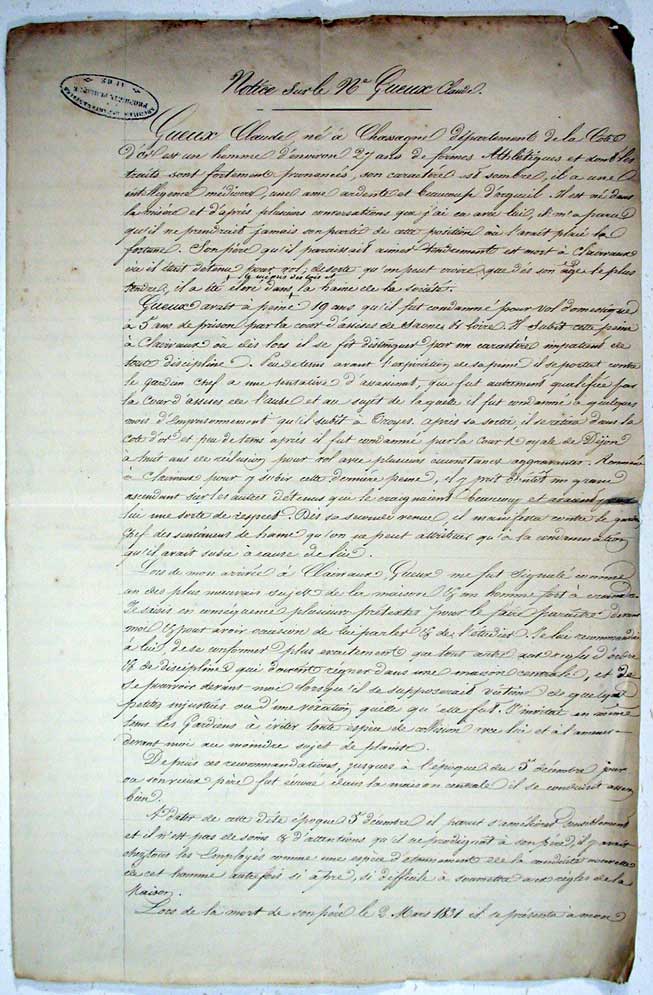 ARCHIVES DÉPARTEMENTALES
AUBE
Notice sur le Né Gueux Claude.
Gueux Claude, né à Chassagne département de la Côte
D'or est un homme d'environ 27 ans de formes Athlétiques et dont les
traits sont fortement prononcés, son caractère est sombre, il a une
intelligence médiocre, une ame ardente et beaucoup d'orgueil. Il est né dans
la misère et d'après plusieurs conversations que j'ai eu avec lui, il m'a paru
qu'il ne prendrait jamais son parti de cette position où l'avait placé la
fortune. Son père qu'il paraissait aimer tendrement est mort à Clairvaux
où il était detenu pour vol; desorte qu'on peut croire que dès son age le plus
le mépris des lois et
tendre, il a été élevé dans la haine de la société.
Gueux avait à peine 19 ans qu'il fut condamné pour vol domestique
à 5 ans de prison par la cour d'assises de Saone & loire. Il Subit cette peine
à Clairvaux où dès lors il se fit distinguer par un caractère impatient de
tout discipline. Peu de tems avant l'expiration de sa peine il se portat contre
le gardien chef a une tentative d'assassinat, qui fut autrement qualifiée par
la Cour d'assises de l'aube et au sujet de laquelle il fut condamné a quelques
mois d'Emprisonnement qu'il subit à Troyes. après sa sortie, il se retira dans la
Cote d'or et peu de tems après il fut condamné par la Cour royale de Dijon
a huit ans de réclusion pour vol avec plusieurs circonstances aggravantes. Ramené
à Clairvaux pour y subir cette dernière peine, il y prit bientôt un grand
ascendant sur les autres détenus qui le craignaient beaucoup et avaient pour
lui une sorte de respect. Dès sa seconde venue, il manifesta contre le gardien
Chef des sentimens de haine qu'on ne peut attribuer qu'à la condamnation
qu'il avait subie à cause de lui.
Lors de mon arrivée à Clairvaux Gueux me fut Signalé comme
un des plus mauvais sujets de la maison & un homme fort à craindre
Je saisis en conséquence plusieurs prétextes pour le faire paraître devant
moi & pour avoir occasion de lui parler & de l'étudier. Je lui recommandai
à lui, de se conformer plus exactement que tout autre aux regles d'ordre
& de discipline qui doivent régner dans une maison centrale, et de
se pourvoir devant moi lorsqu'il se supposerait victime de quelques
petites injustices ou d'une vexation quelle qu'elle fut. J'invitai en même
tems les Gardiens à éviter toute espèce de collision avec lui et à l'amener
devant moi au moindre sujet de plainte.
Depuis ces recommandations, jusques à l'époque du 5 décembre jour
où son vieux père fut écroué dans la maison centrale il se conduisit assez
bien.
A dater de cette dite époque 5 décembre il parut s'améliorer sensiblement
et il n'est pas de soins & d'attentions qu'il ne prodiguât à son père, il y avait
chez tous les Employés comme une espèce d'étonnement de la conduite nouvelle
de cet homme autrefois si âpre, si difficile à soumettre aux règles de la
Maison.
Lors de la mort de son père le 2 Mars 1831 il se présenta à mon